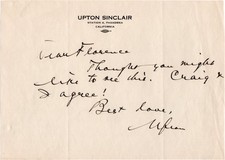 UPTON SINCLAIR
STATION A, PASADENA
CALIFORNIA
Dear Florence
Thought you might
like to see this. Craig &
I agree!
Best love,
Upton